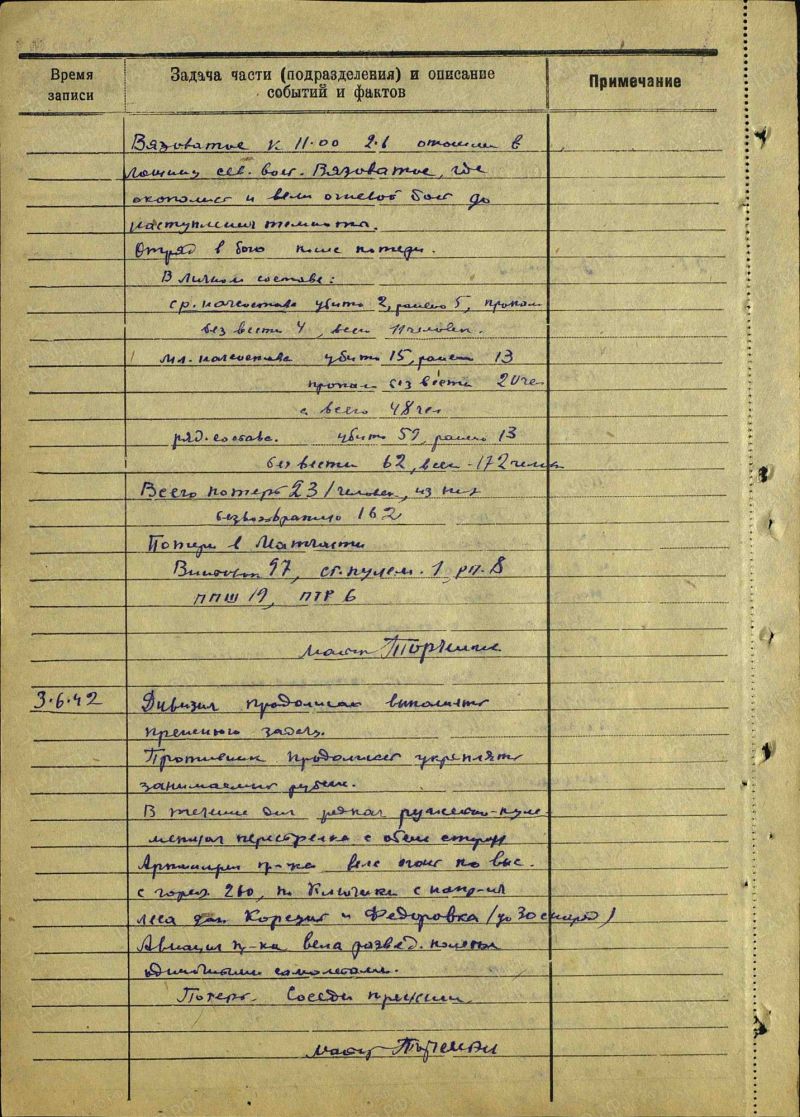 Время записи
Задача части (подразделения) и описание событий и фактов
Примечание
Вязоватое к 11.00 2.6 отошли в
лощину сев. вост. Вязоватое, где
окопались и вели огневой бой до
наступления темноты.
Отряд в бою понес потери.
В личном составе:
ср. начсостава убито 2, ранено 5, пропал
без вести 4, всего 11 человек.
мл. начсостава убито 15, ранен 13
пропал без вести 20 чел
а всего 48 чел
ряд. состава. убито 59, ранено 13
без вести 62, всего - 172 челов
Всего потерь 231 человек, из них
безвозвратно 162
Потери в Матчасти
Винтовок 97, ст. пулем. 1, рп. 8
ППШ 19, ПТР 6
3.6.42 Дивизия продолжает выполнять
прежнюю задачу.
Противник продолжает укреплять
занимаемый рубеж.
В течение дня редкая ружейно-пуле-
метная перестрелка с обеих сторон
Артиллерия пр-ка вела огонь по выс.
с гориз. 260, по Ключики с напр-ия
леса Корезин и Федоровка (до 30 снаряд)
Авиация пр-ка вела развед. полеты
одиночными самолетами.
Потерь Соседи прежние.